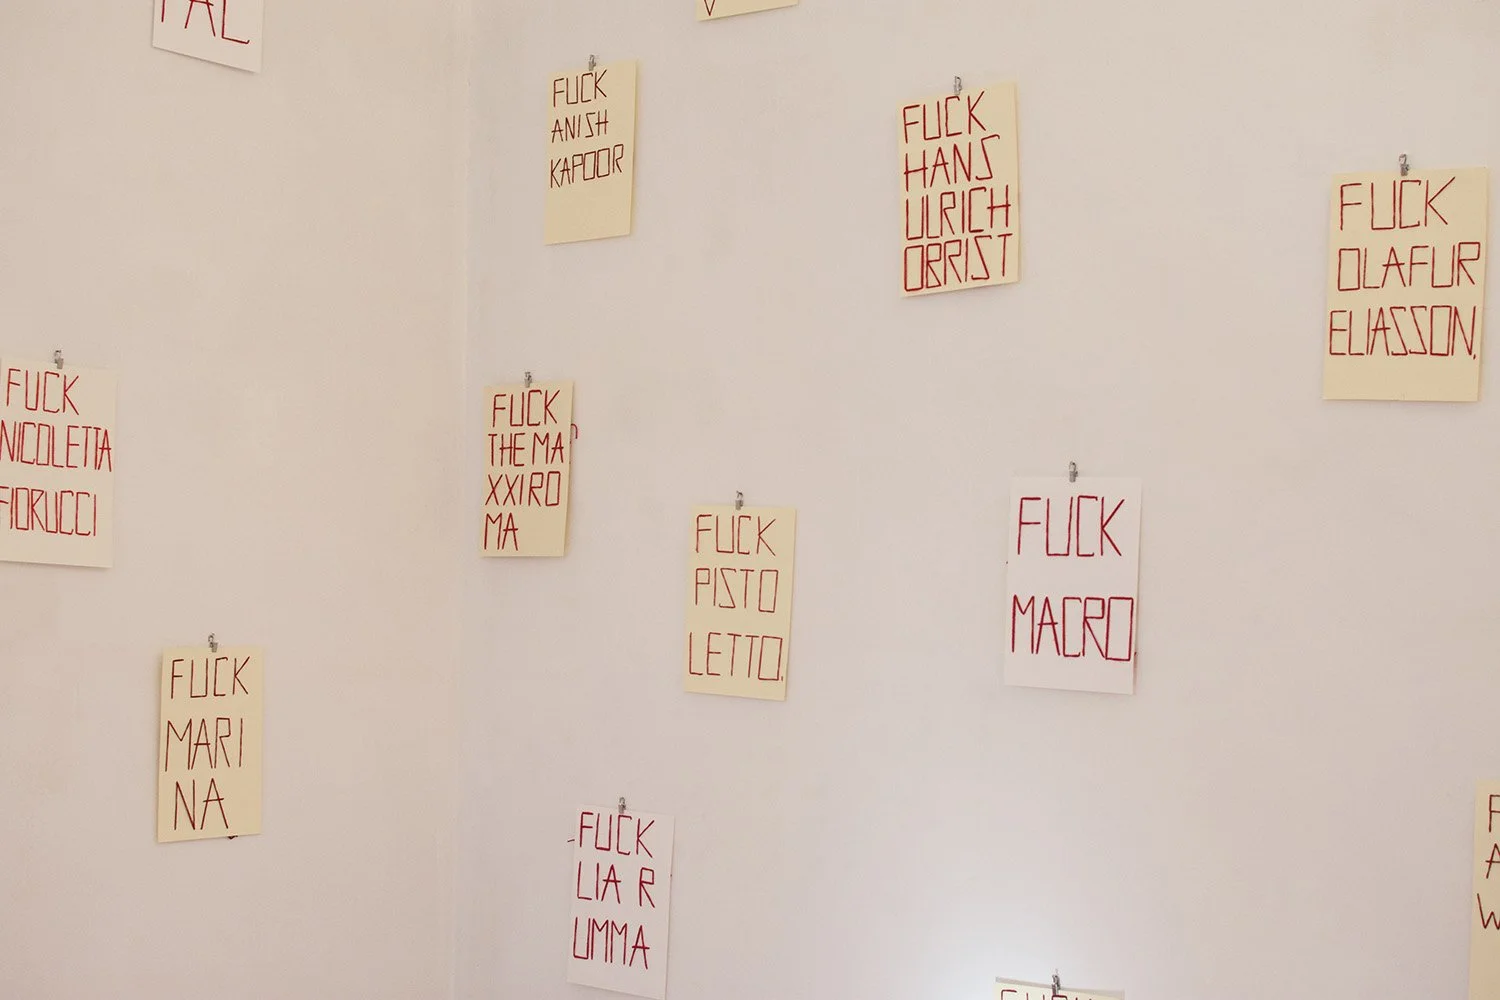 FUCK
ANISH
KAPOOR
FUCK
HANS
ULRICH
OBRIST
FUCK
OLAFUR
ELIASSON,
FUCK
NICOLETTA
FIORUCCI
FUCK
THE MA
XXIRO
MA
FUCK
PISTO
LETTO.
FUCK
MACRO
FUCK
MARI
NA
FUCK
LIA R
UMMA